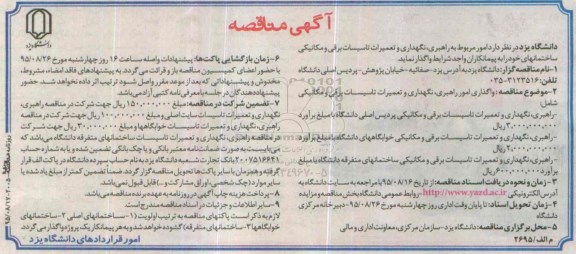 آگهی مناقصه
دانشگاه یزد در نظر دارد امور مربوط به راهبری، نگهداری و تعمیرات تاسیسات برقی و مکانیکی
ساختمانهای خود را به پیمانکاران واجد شرایط واگذار نماید.
۱-نام مناقصه گزار: دانشگاه یزد به آدرس یزد- صفائیه- خیابان پژوهش- پردیس اصلی دانشگاه
تلفن: ۳۱۲۳۳۵۱۶-۰۳۵
۲-موضوع مناقصه: واگذاری امور راهبری، نگهداری و تعمیرات تاسیسات برقی و مکانیکی
شامل:
-راهبری، نگهداری و تعمیرات تاسیسات برقی و مکانیکی پردیس اصلی دانشگاه با مبلغ برآورد
ریال
-راهبری، نگهداری و تعمیرات تاسیسات برقی و مکانیکی خوابگاههای دانشگاه با مبلغ برآورد
ریال
-راهبری، نگهداری و تعمیرات تاسیسات برقی و مکانیکی ساختمانهای متفرقه دانشگاه با مبلغ
برآورد ریال
۳-زمان و نحوه دریافت اسناد مناقصه: از تاریخ ۹۵/۰۸/۱۶ با مراجعه به سایت دانشگاه به
آدرس الکترونیکی http://www.yazd.ac.ir-روابط عمومی دانشگاه بخش مناقصه و مزایده
۴-زمان تحویل اسناد: تا پایان وقت اداری روز چهارشنبه مورخ ۹۵/۰۸/۲۶-دبیرخانه مرکزی
دانشگاه
۵-محل برگزاری مناقصه: دانشگاه یزد-سازمان مرکزی، معاونت اداری و مالی
م الف/۲۶۹۵
۶-زمان بازگشایی پاکت‌ها: پیشنهادات واصله ساعت ۱۶ روز چهارشنبه مورخ ۹۵/۰۸/۲۶
با حضور اعضای کمیسیون مناقصه باز و قرائت می گردد. به پیشنهادهای فاقد امضاء، مشروط،
مخدوش و پیشنهاداتی که بعد از موعد مقرر واصل شود ترتیب اثر داده نخواهد شد. حضور
پیشنهاددهندگان در جلسه با معرفی نامه کتبی آزاد می باشد.
۷-تضمین شرکت در مناقصه: مبلغ ۱۵۰,۰۰۰,۰۰۰ ریال جهت شرکت در مناقصه راهبری،
نگهداری و تعمیرات تاسیسات سایت اصلی و مبلغ ۱۰۰,۰۰۰,۰۰۰ ریال جهت شرکت در مناقصه
راهبری، نگهداری و تعمیرات تاسیسات خوابگاهها و مبلغ ۳۰,۰۰۰,۰۰۰ ریال جهت شرکت
در مناقصه راهبری، نگهداری و تعمیرات تاسیسات ساختمانهای متفرقه دانشگاه می باشد که
می بایست به صورت ضمانت نامه معتبر بانکی و یا چک بانکی تضمین شده و یا به شماره حساب
بانک تجارت شعبه دانشگاه یزد به نام حساب سپرده دانشگاه در پاکت الف قرار
گرفته و همزمان با سایر پاکت‌ها تحویل مناقصه گزار گردد. ضمناً تضمین کمتر از مبلغ یاد شده یا
سایر موارد (چک شخصی، اوراق مشارکت و...) قابل قبول نمی باشد.
۸-پرداخت هزینه چاپ آگهی در روزنامه به عهده برنده مناقصه می باشد.
۹-سایر اطلاعات و جزئیات در اسناد مناقصه مندرج است.
لازم به ذکر است پاکتهای مناقصه به ترتیب اولویت (۱-ساختمانهای اصلی ۲-ساختمانهای
خوابگاهها ۳-ساختمانهای متفرقه) گشوده خواهد شد و به هر پیمانکار یک پروژه واگذار می گردد.
امور قراردادهای دانشگاه یزد